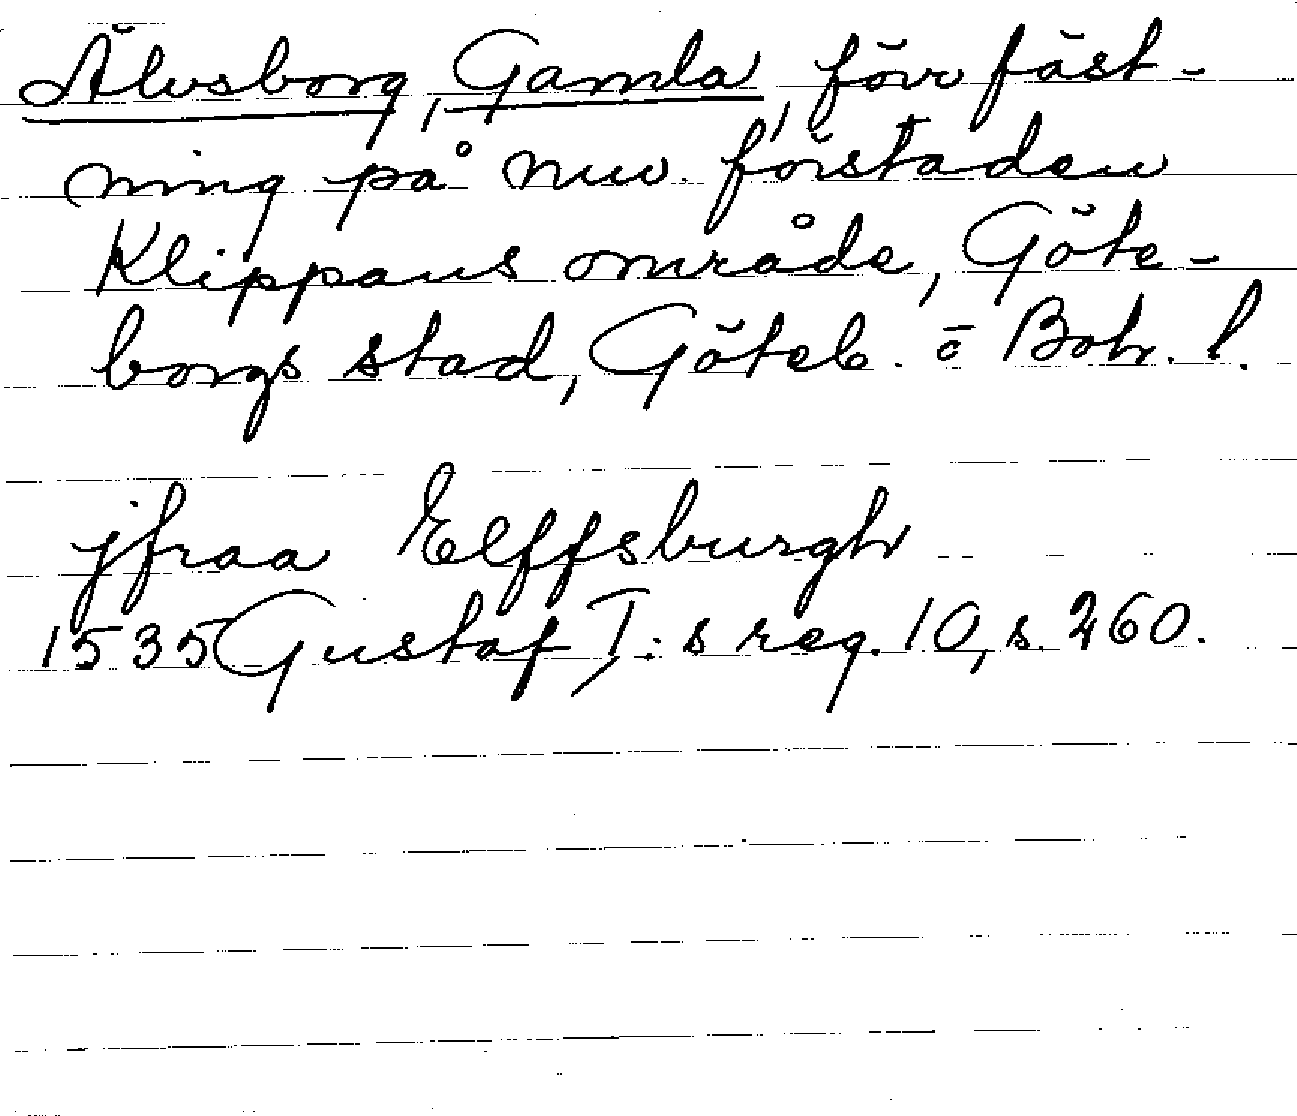 Älvsborg, Gamla, förr fäst-
ning på nuv. förstaden
Klippans område, Göte-
borgs stad, Göteb. o Boh. l.
jfraa Elffsburgh
1535 Gustaf I:s reg. 10, s. 260.